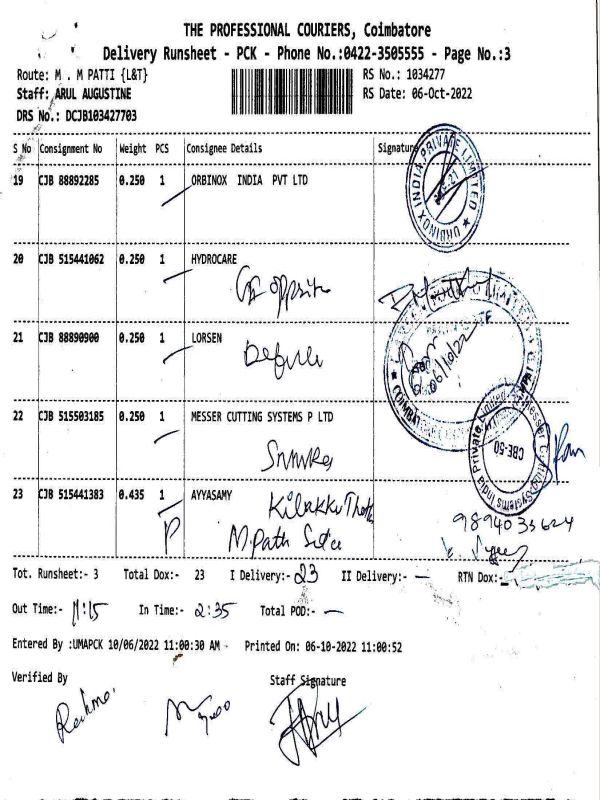 THE PROFESSIONAL COURIERS, Coimbatore
Delivery Runsheet - PCK - Phone No.:0422-3505555 - Page No.:3
Route: M . M PATTI {L&T} RS No.: 1034277
Staff: ARUL AUGUSTINE RS Date: 06-Oct-2022
DRS No.: DCJB103427703
S No Consignment No Weight PCS Consignee Details Signature
19 CJB 88892285 0.250 1 ORBINOX INDIA PVT LTD
ORBINOX INDIA PRIVATE LIMITED
20 CJB 515441062 0.250 1 HYDROCARE
opposite
21 CJB 88890900 0.250 1 LORSEN
06/10/22
22 CJB 515503185 0.250 1 MESSER CUTTING SYSTEMS P LTD
Messer Cutting Systems India Private Limited
CBE-50
23 CJB 515441383 0.435 1 AYYASAMY
P
9894033624
Tot. Runsheet:- 3 Total Dox:- 23 I Delivery:- 23 II Delivery:- — RTN Dox:-
Out Time:- 11:15 In Time:- 2:35 Total POD:- —
Entered By :UMAPCK 10/06/2022 11:00:30 AM - Printed On: 06-10-2022 11:00:52
Verified By Staff Signature